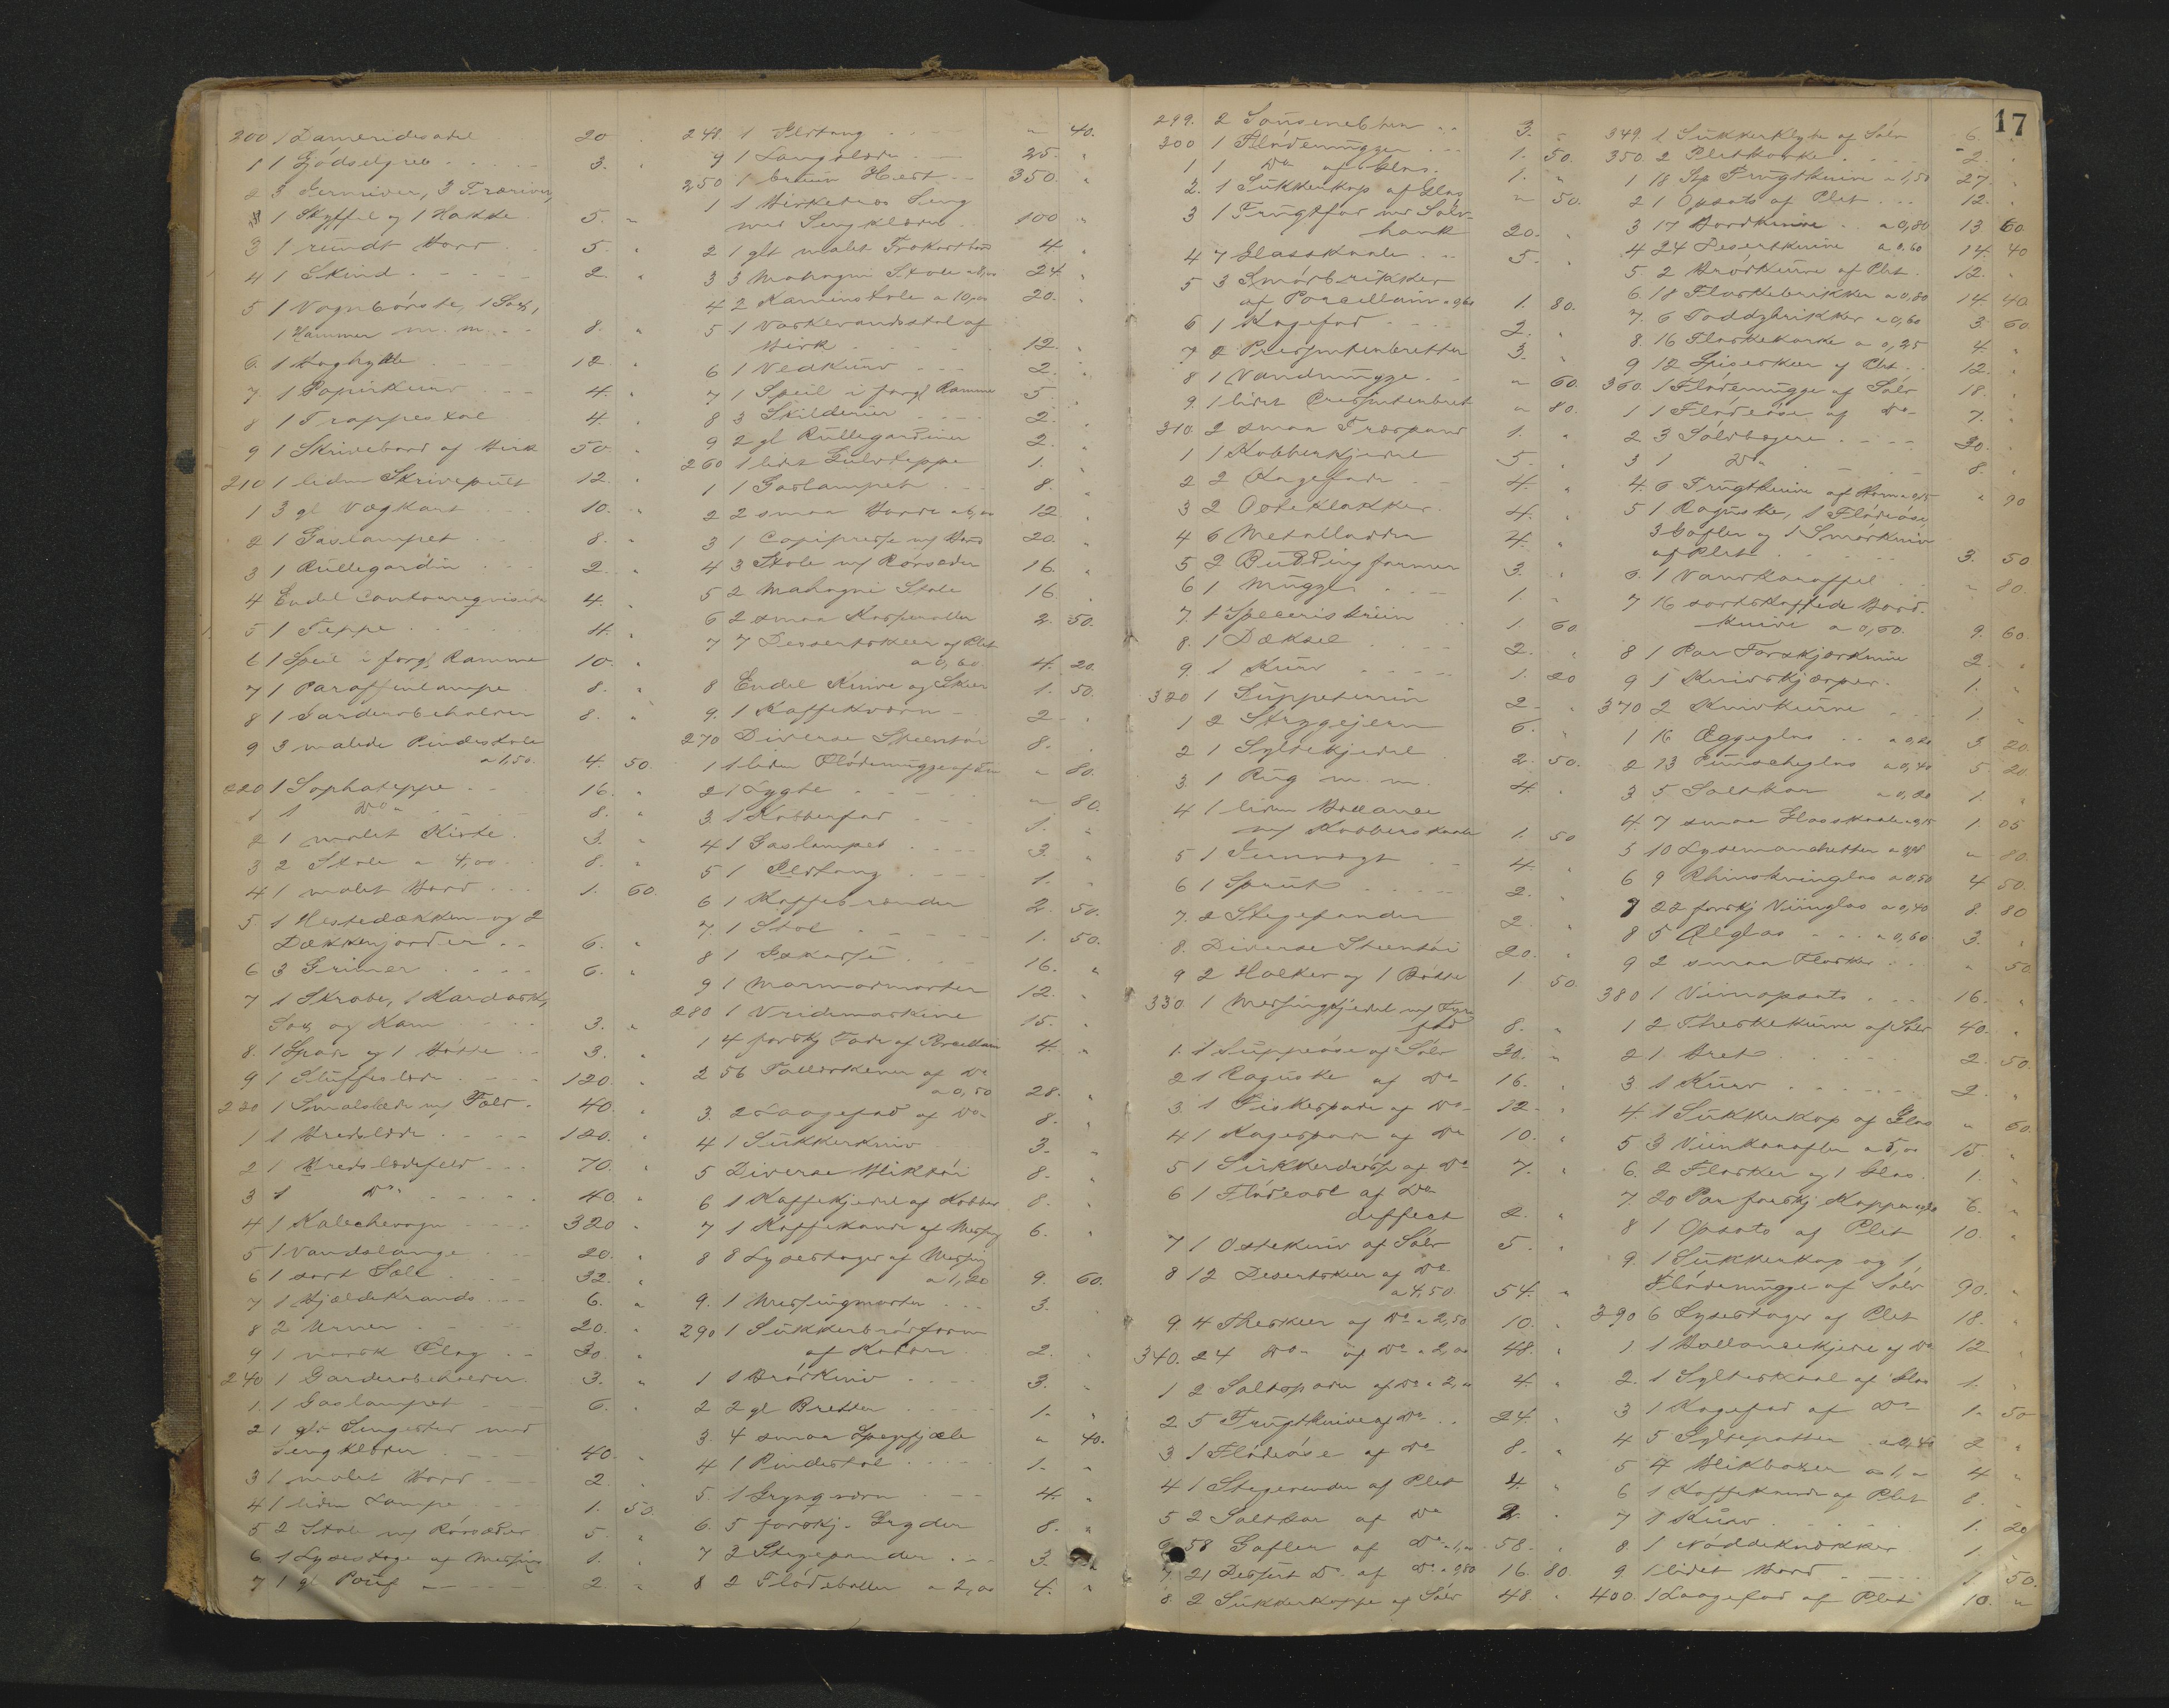 200 1 Dameridesadel 20
1 1 Gjödselgreb 3. "
2 3 Jernriver, 3 Træriver,
1 Skyffel og 1 Hakke 5. "
3 1 rundt Bord 5. "
4 1 Skind 2. "
5 1 Vognbörste, 1 Sax,
1 Hammer m. m. 8. "
6. 1 12 "
7 1 Papirkurv 4. "
8 1 Trappestol 4. "
9 1 Skrivebord af Birk 50. "
210 1 liden Skrivepult 12. "
1 3 gl Vægkart 10. "
2 1 Gaslampet 8. "
3 1 Rullegardin 2. "
4 Endel Contorreqvisiter 4. "
5 1 Teppe 4. "
6 1 Speil i forg. Ramme 10. "
7 1 Paraffinlampe 8. "
8 1 Garderobeholder 8. "
9 3 malede Pindestole
a 1,50. 4. 50.
220 1 Sophateppe 16. "
1 1 Do 8. "
2 1 malet Kiste. 3. "
3 2 Stole a 4,00 8. "
4 1 malet Bord 1. 60.
5. 1 Hestedækken og 2
Dækkenjorder 6. "
6 3 Grimer 6. "
7 1 Skrabe, 1 Kardask,
Sax og Kam 3. "
8. 1 Spade og 1 Bötte 3. "
9 1 Sluffeslæde 120. "
230 1 Smalslæde m/ Fæld 40. "
1 1 Bredslæde 120. "
2 1 Bredslædefeld 70. "
3 1 Do 40. "
4 1 Kalechevogn 320 "
5 1 Vandslange 20. "
6 1 sort Sæle 32. "
7 1 Bjældekrands 6. "
8 2 Urner 20. "
9 1 norsk Flag 30. "
240 1 Garderobeholder. 3. "
1. 1 Gaslampet 6. "
2 1 glt Sengested med
Sengklæder 40. "
3 1 malet Bord 2. "
4 1 liden Lampe 1. 50.
5 2 Stole m/ Rörsæder 5. "
6 1 Lysestage af Messing 1. "
7 1 gl Pouf 2. "
248. 1 Ildtang " 40.
9 1 Langslæde 25. "
250 1 brun Hest 350. "
1 1 Birketræs Seng
med Sengklæder 100 "
2 1 glt malet Frokostbord 4. "
3 3 Mahogni Stole a 8,00 24. "
4 2 Kaminstole a 10,00 20. "
5 1 Vaskevandsstol af
Birk 12. "
6 1 Vedkurv 2. "
7 1 Speil i forg. Ramme 5. "
8 3 Skilderier 2. "
9 2 gl Rullegardiner 2. "
260 1 lidet Gulvteppe 1. "
1 1 Gaslampet 8. "
2 2 smaa Borde a 6,00 12. "
3 1 Copipresse m/ Bord 20. "
4 3 Stole m/ Rörsæder 16. "
5 2 Mahogni Stole 16. "
6 2 smaa Kasseroller 2. 50.
7 7 Dessertskeer af Plet
a 0,60 4. 20.
8 Endel Knive og Skeer 1. 50.
9. 1 Kaffekværn 2 "
270 Diverse Steentöi 8. "
1 1 liden Flödemugge af Tin " 80.
2 1 Lygte " 80.
3. 1 Kobberfad 1. "
4 1 Gaslampet 3. "
5 1 Ildtang 1. "
6 1 Kaffebrænder 2. 50.
7. 1 Stol 1. 50.
8 1 Iskasse 16. "
9 1 Marmormorter 12. "
280 1 Vridemaskine 15. "
1 4 forskj Fade af Porcellain 4. "
2 56 Tallerkener af Do
a 0,50 28. "
3. 2 Laagefad af Do 8. "
4 1 Sukkerkniv 3. "
5 Diverse Bliktöi 8. "
6 1 Kaffekjedel af Kobber 8. "
7 1 Kaffekande af Messing 6. "
8 8 Lysestager af Messing
a 1,20 9. 60.
9. 1 Messingmorter 3. "
290 1 Sukkerbrödform
af Kobber 2. "
1 1 Brödkniv 3. "
2 2 gl Bretter 1. "
3. 4 smaa Spegfjæle " 40.
4 1 Pindestol 1. "
5. 1 Grynqværn 4. "
6. 5 forskj. Gryder 8. "
7 3 Stegepander 3. "
8 2 Flödeboller a 2,00 4. "
17
299. 2 3. "
300 1 Flödemugge 1. 50.
1 1 Do af Glas 1. "
2. 1 Sukkerkop af Glas " 50.
3 1 Frugtfad med Sölv-
hank 20. "
4 7 Glasskaale 5. "
5 3 Smörbrikker
af Porcellain a 0,60 1. 80.
6 1 Kagefad 2. "
7 2 Presenterbretter 3. "
8 1 Vandmugge " 60.
9. 1 lidet Presenterbret " 80.
310. 2 smaa Træspand 1. "
1 1 Kobberkjedel 5. "
2 2 Kagefade 4. "
3 2 Osteklokker 4. "
4 6 Metalladder 4. "
5 2 Buddingformer 3. "
6 1 Mugge 1. "
7. 1 Specerisskrin 1. 60
8. 1 Dæksel 2. "
9. 1 Kurv 1. 20
320 1 Suppeterrin 2 "
1 2 Strygejern 6. "
2 1 Syltekjedel 2. 50.
3. 1 Rug m. m. 4. "
4 1 liden Ballance
m/ Kobberskaale 1. 50
5 1 Jernvægt 4. "
6 1 Spruit 2. "
7. 2 Stegepander 2. "
8. Diverse Steentöi 20. "
9 2 Holker og 1 Bötte 1 50.
330. 1 Messingkjedel m/ Fyrfad 8. "
1. 1 Suppeöse af Sölv 30. "
2 1 Raguske af Do 16. "
3. 1 Fiskespade af Do 12. "
4 1 Kagespade af Do 10. "
5 1 Sukkerdrys af Do 7. "
6 1 Flödeausl af Do
deffect 2. "
7 1 Ostekniv af Sölv 5. "
8 12 Desertskeer af Do
a 4,50. 54. "
9. 4 Theskeer af Do a 2,50 10. "
340. 24 Do af Do a 2,00 48. "
1 2 Saltspader af Do a 2,00 4. "
2. 5 Frugtknive af Do 24. "
3 1 Flödeöse af Do 8. "
4 1 Stegerender af Plet 4. "
5 2 Saltkar af Do 2. "
6. 58 Gafler af Do a 1,00 58. "
7. 21 Dessert Do af Do a 0,80 16. 80.
8. 2 Sukkerkoppe af Sölv 48. "
349. 1 Sukkerklype af Sölv 6. "
350. 2 Pletkorke 2. "
1 18 Stk Frugtknive a 1,50 27. "
2 1 Opsats af Plet 12. "
3 17 Bordknive a 0,80 13. 60.
4 24 Desertknive a 0,60 14. 40
5. 2 Brödkurve af Plet 12. "
6. 18 Flaskebrikker a 0,80 14. 40.
7. 6 Toddybrikker a 0,60 3. 60
8. 16 Flaskekorke a 0,25 4. "
9 12 Spiseskeer af Plet 12. "
360. 1 Flödemugge af Sölv 18. "
1 1 Flödeöse af Do 7. "
2 3 Sölvbægere 20. "
3 1 Do 8. "
4. 6 Frugtknive af Horn a 0,15 " 90
5 1 Raguske, 1 Flödeöse,
3 Gafler og 1 Smörkniv
af Plet 3. 50
6. 1 Vandkaraffel " 80.
7 16 sortskaftede Bord-
knive a 0,60. 9. 60.
8 1 Par Forskjærknive 2. "
9 1 Knivskjærper. 1. "
370 2 Knivkurve 1. "
1 16 Æggeglas a 0,20 3. 20.
2 13 Punscheglas a 0,40 5 20
3 5 Saltkar a 0,20 1. "
4. 7 smaa Glasskaale a 0,15 1. 05
5 10 Lysemanchetter a 0,08 " 80.
6 9 Rhinskvinglas a 0,50 4 50.
7 22 forskj Viinglas a 0,40 8. 80
8 5 Ølglas a 0,60 3. "
9 2 smaa Flasker " 50
380 1 Viinopsats 16. "
1 2 Theskekurve af Sölv 40. "
2 1 Bret 2. 50
3 1 Kurv 2. "
4. 1 Sukkerkop af Glas " 60
5 3 Viinkarafler a 5,00 15 "
6. 2 Flasker og 1 Glas 1. "
7. 20 Par forskj Kopper a 0,30 6. "
8 1 Opsats af Plet 10. "
9. 1 Sukkerkop og 1
Flödemugge af Sölv 90. "
390 6 Lysestager af Plet 18. "
1 1 af Do 12 "
2. 1 Sylteskaal af Glas 1. "
3 1 Kagefad af Do 1. 50
4 5 Syltepotter a 0,40 2 "
5 4 Blikboxer a 1,00 4 "
6 1 Kaffekande af Plet 8. "
7 1 Kurv 1. 20
8 1 Nöddeknækker 1. "
9. 1 lidet Bord 1. 50.
400. 1 Laagefad af Plet 10. "